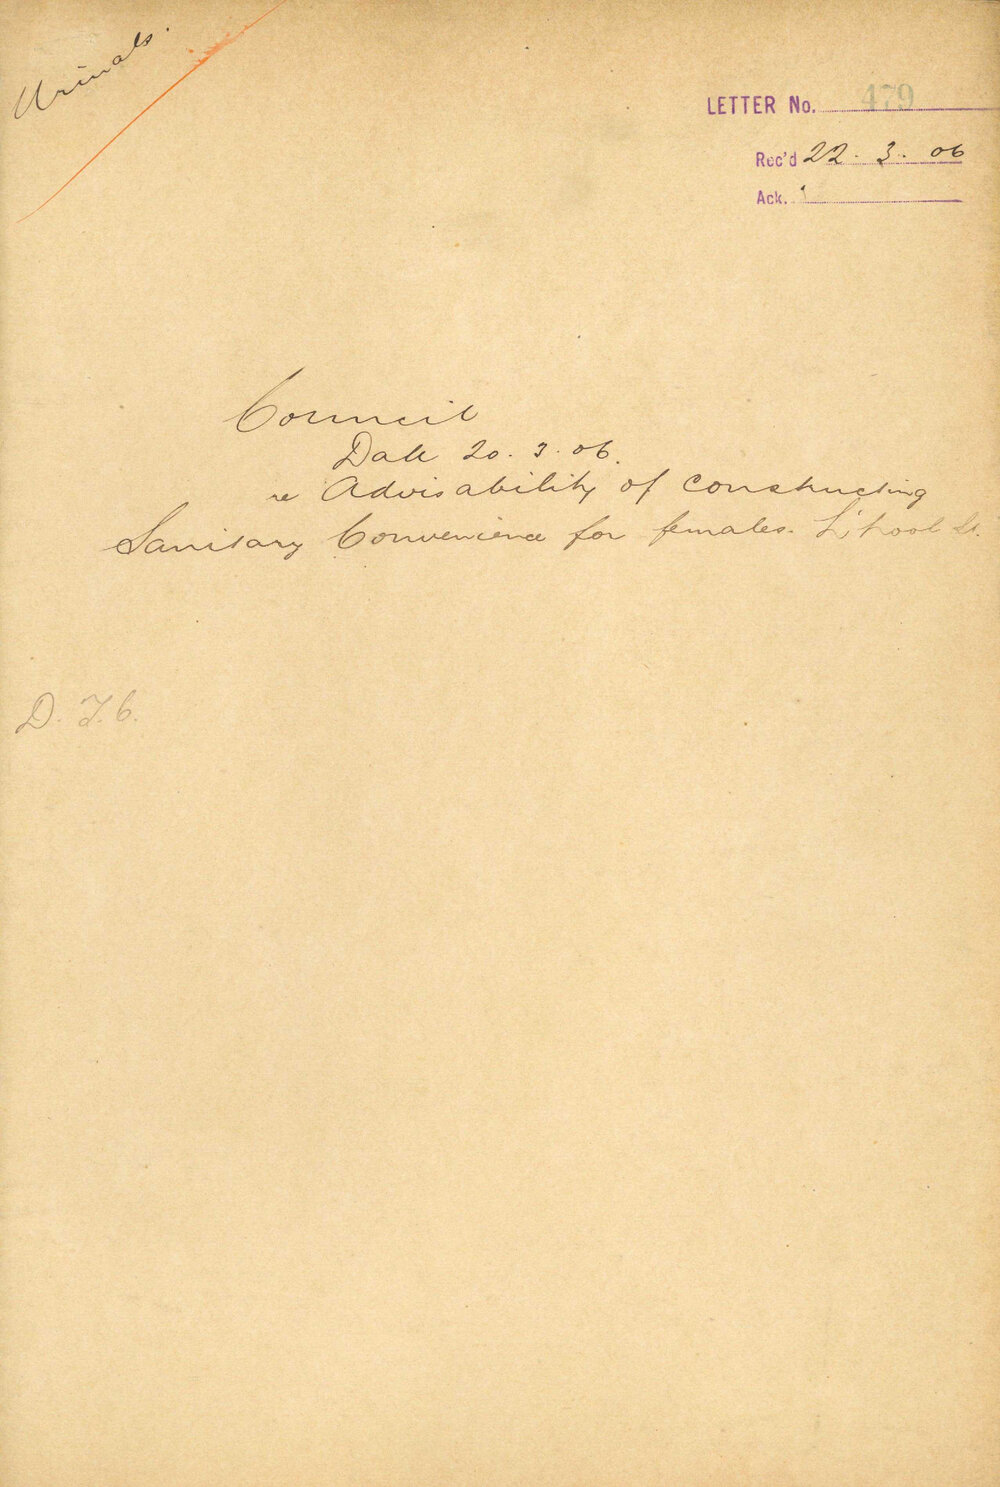 Urinals.
LETTER No. 479
Rec'd 22. 3. 06
Ack.
Council
Date 20. 3. 06.
re Advisability of constructing
Sanitary Convenience for females. L'pool St.
D. T. C.